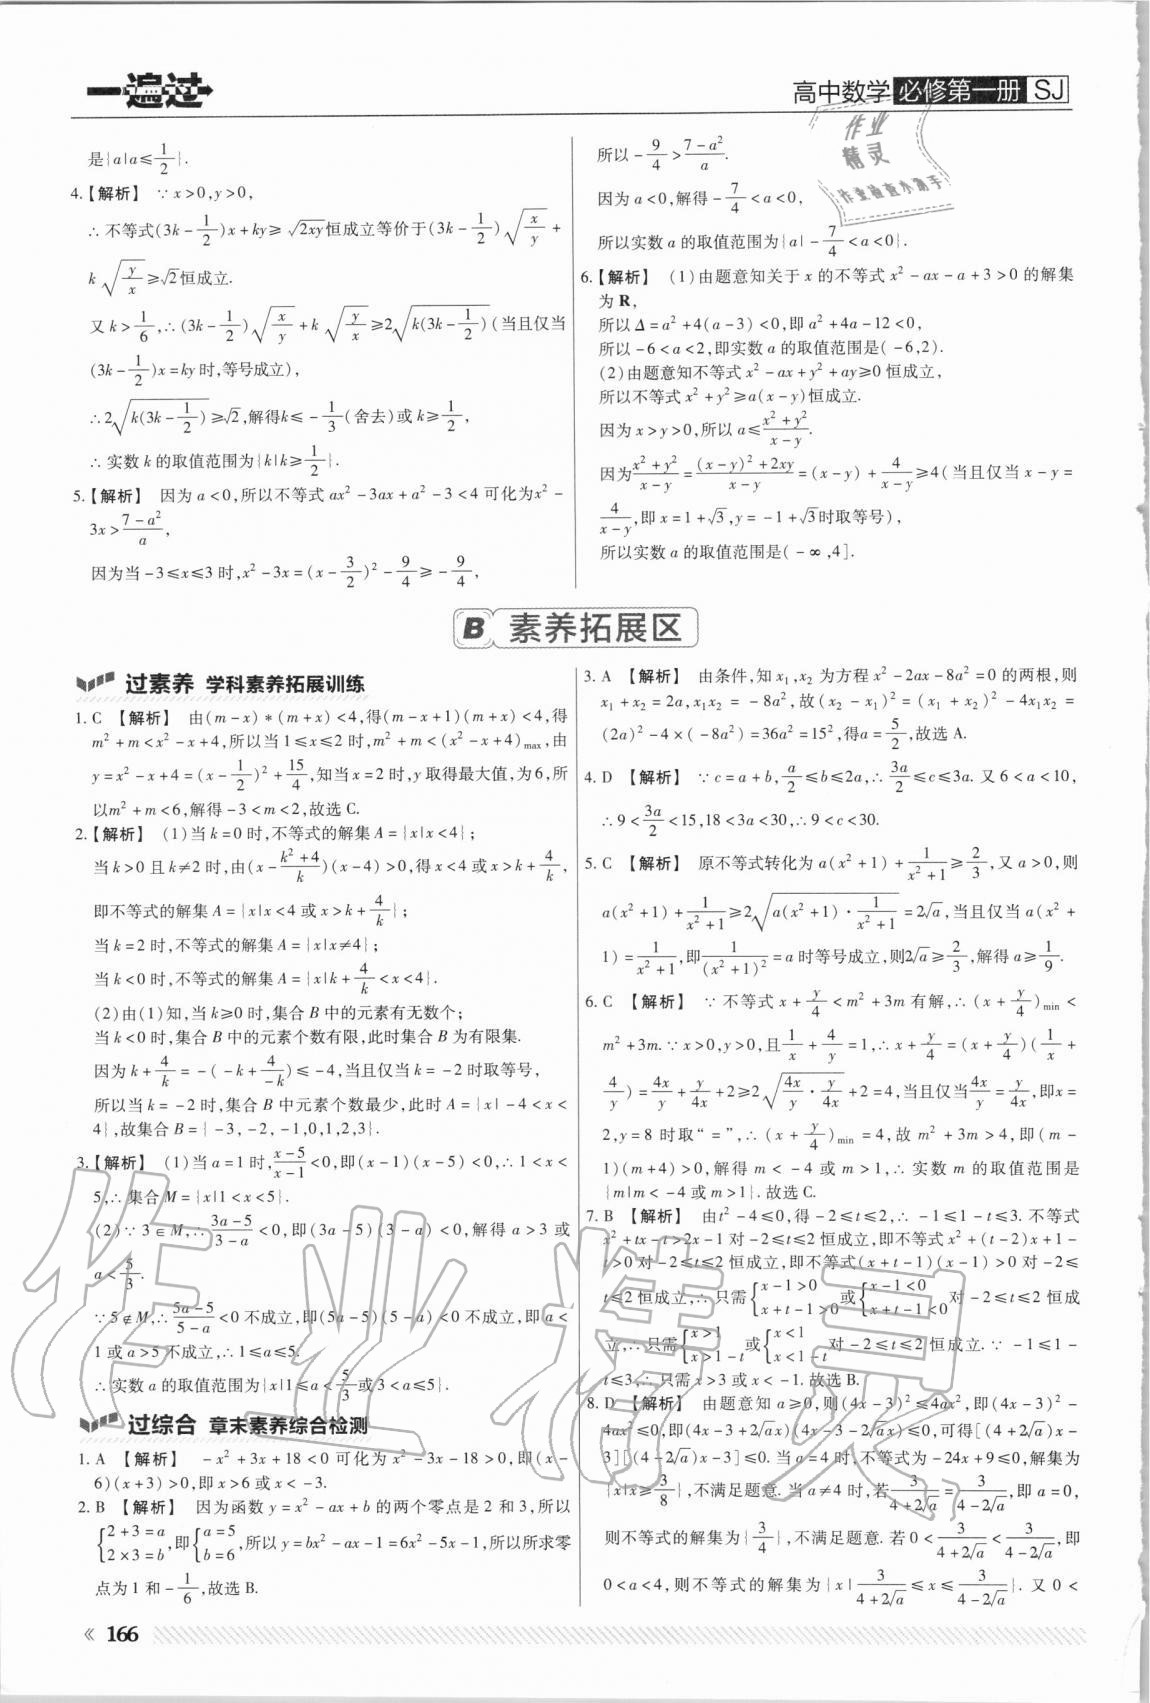 一遍过
高中数学 必修第一册 SJ
作业
精灵
作业检查小助手
是{a|a≤1/2}.
4.【解析】 ∵x>0,y>0,
∴不等式(3k-1/2)x+ky≥√(2xy)恒成立等价于(3k-1/2)√(x/y)+
k√(y/x)≥√2恒成立.
又k>1/6,∴(3k-1/2)√(x/y)+k√(y/x)≥2√(k(3k-1/2))(当且仅当
(3k-1/2)x=ky时,等号成立),
∴2√(k(3k-1/2))≥√2,解得k≤-1/3(舍去)或k≥1/2,
∴实数k的取值范围为{k|k≥1/2}.
5.【解析】 因为a<0,所以不等式ax²-3ax+a²-3<4可化为x²-
3x>(7-a²)/a,
因为当-3≤x≤3时,x²-3x=(x-3/2)²-9/4≥-9/4,
所以-9/4>(7-a²)/a.
因为a<0,解得-7/4<a<0,
所以实数a的取值范围为{a|-7/4<a<0}.
6.【解析】 (1)由题意知关于x的不等式x²-ax-a+3>0的解集
为R,
所以Δ=a²+4(a-3)<0,即a²+4a-12<0,
所以-6<a<2,即实数a的取值范围是(-6,2).
(2)由题意知不等式x²-ax+y²+ay≥0恒成立,
所以不等式x²+y²≥a(x-y)恒成立.
因为x>y>0,所以a≤(x²+y²)/(x-y).
因为(x²+y²)/(x-y)=((x-y)²+2xy)/(x-y)=(x-y)+4/(x-y)≥4(当且仅当x-y=
4/(x-y),即x=1+√3,y=-1+√3时取等号),
所以实数a的取值范围是(-∞,4].
B 素养拓展区
过素养 学科素养拓展训练
1. C 【解析】 由(m-x)*(m+x)<4,得(m-x+1)(m+x)<4,得
m²+m<x²-x+4,所以当1≤x≤2时,m²+m<(x²-x+4)max,由
y=x²-x+4=(x-1/2)²+15/4,知当x=2时,y取得最大值,为6,所
以m²+m<6,解得-3<m<2,故选C.
2.【解析】 (1)当k=0时,不等式的解集A={x|x<4};
当k>0且k≠2时,由(x-(k²+4)/k)(x-4)>0,得x<4或x>k+4/k,
即不等式的解集A={x|x<4或x>k+4/k};
当k=2时,不等式的解集A={x|x≠4};
当k<0时,不等式的解集A={x|k+4/k<x<4}.
(2)由(1)知,当k≥0时,集合B中的元素有无数个;
当k<0时,集合B中的元素个数有限,此时集合B为有限集.
因为k+4/k=-(-k+4/(-k))≤-4,当且仅当k=-2时取等号,
所以当k=-2时,集合B中元素个数最少,此时A={x|-4<x<
4},故集合B={-3,-2,-1,0,1,2,3}.
3.【解析】 (1)当a=1时,(x-5)/(x-1)<0,即(x-1)(x-5)<0,∴1<x<
5,∴集合M={x|1<x<5}.
(2)∵3∈M,∴(3a-5)/(3-a)<0,即(3a-5)(3-a)<0,解得a>3或
a<5/3.
∵5∉M,∴(5a-5)/(5-a)<0不成立,即(5a-5)(5-a)<0不成立,即a<
1或a>5不成立,∴1≤a≤5.
∴实数a的取值范围为{x|1≤a<5/3或3<a≤5}.
过综合 章末素养综合检测
1. A 【解析】 -x²+3x+18<0可化为x²-3x-18>0,即(x-
6)(x+3)>0,即x>6或x<-3.
2. B 【解析】 因为函数y=x²-ax+b的两个零点是2和3,所以
{2+3=a 2×3=b,即{a=5 b=6,所以y=bx²-ax-1=6x²-5x-1,所以所求零
点为1和-1/6,故选B.
3. A 【解析】 由条件,知x₁,x₂为方程x²-2ax-8a²=0的两根,则
x₁+x₂=2a,x₁x₂=-8a²,故(x₂-x₁)²=(x₁+x₂)²-4x₁x₂=
(2a)²-4×(-8a²)=36a²=15²,得a=5/2,故选A.
4. D 【解析】 ∵c=a+b,a/2≤b≤2a,∴3a/2≤c≤3a.又6<a<10,
∴9<3a/2<15,18<3a<30,∴9<c<30.
5. C 【解析】 原不等式转化为a(x²+1)+1/(x²+1)≥2/3,又a>0,则
a(x²+1)+1/(x²+1)≥2√(a(x²+1)·1/(x²+1))=2√a,当且仅当a(x²+
1)=1/(x²+1),即1/(x²+1)²=a时等号成立,则2√a≥2/3,解得a≥1/9.
6. C 【解析】 ∵不等式x+y/4<m²+3m有解,∴(x+y/4)min<
m²+3m.∵x>0,y>0,且1/x+4/y=1,∴x+y/4=(x+y/4)(1/x+
4/y)=4x/y+y/4x+2≥2√(4x/y·y/4x)+2=4,当且仅当4x/y=y/4x,即x=
2,y=8时取“=”,∴(x+y/4)min=4,故m²+3m>4,即(m-
1)(m+4)>0,解得m<-4或m>1,∴实数m的取值范围是
{m|m<-4或m>1}.故选C.
7. B 【解析】 由t²-4≤0,得-2≤t≤2,∴-1≤1-t≤3.不等式
x²+tx-t>2x-1对-2≤t≤2恒成立,即不等式x²+(t-2)x+1-
t>0对-2≤t≤2恒成立,即不等式(x+t-1)(x-1)>0对-2≤
t≤2恒成立,∴只需{x-1>0 x+t-1>0或{x-1<0 x+t-1<0对-2≤t≤2恒成
立,∴只需{x>1 x>1-t或{x<1 x<1-t对-2≤t≤2恒成立.∵-1≤1-
t≤3,∴只需x>3或x<-1.故选B.
8. D 【解析】 由题意知a≥0,则(4x-3)²≤4ax²,即(4x-3)²-
4ax²≤0,即(4x-3+2√ax)(4x-3-2√ax)≤0,可得[(4+2√a)x-
3][(4-2√a)x-3]≤0.当a=4时,不等式为-24x+9≤0,解集为
{x|x≥3/8},不满足题意.当a≠4时,若3/(4+2√a)=3/(4-2√a),即a=0,
则不等式的解集为{3/4},不满足题意.若0<3/(4+2√a)<3/(4-2√a),即
0<a<4,则不等式的解集为{x|3/(4+2√a)≤x≤3/(4-2√a)}.又0<
作业精灵
« 166